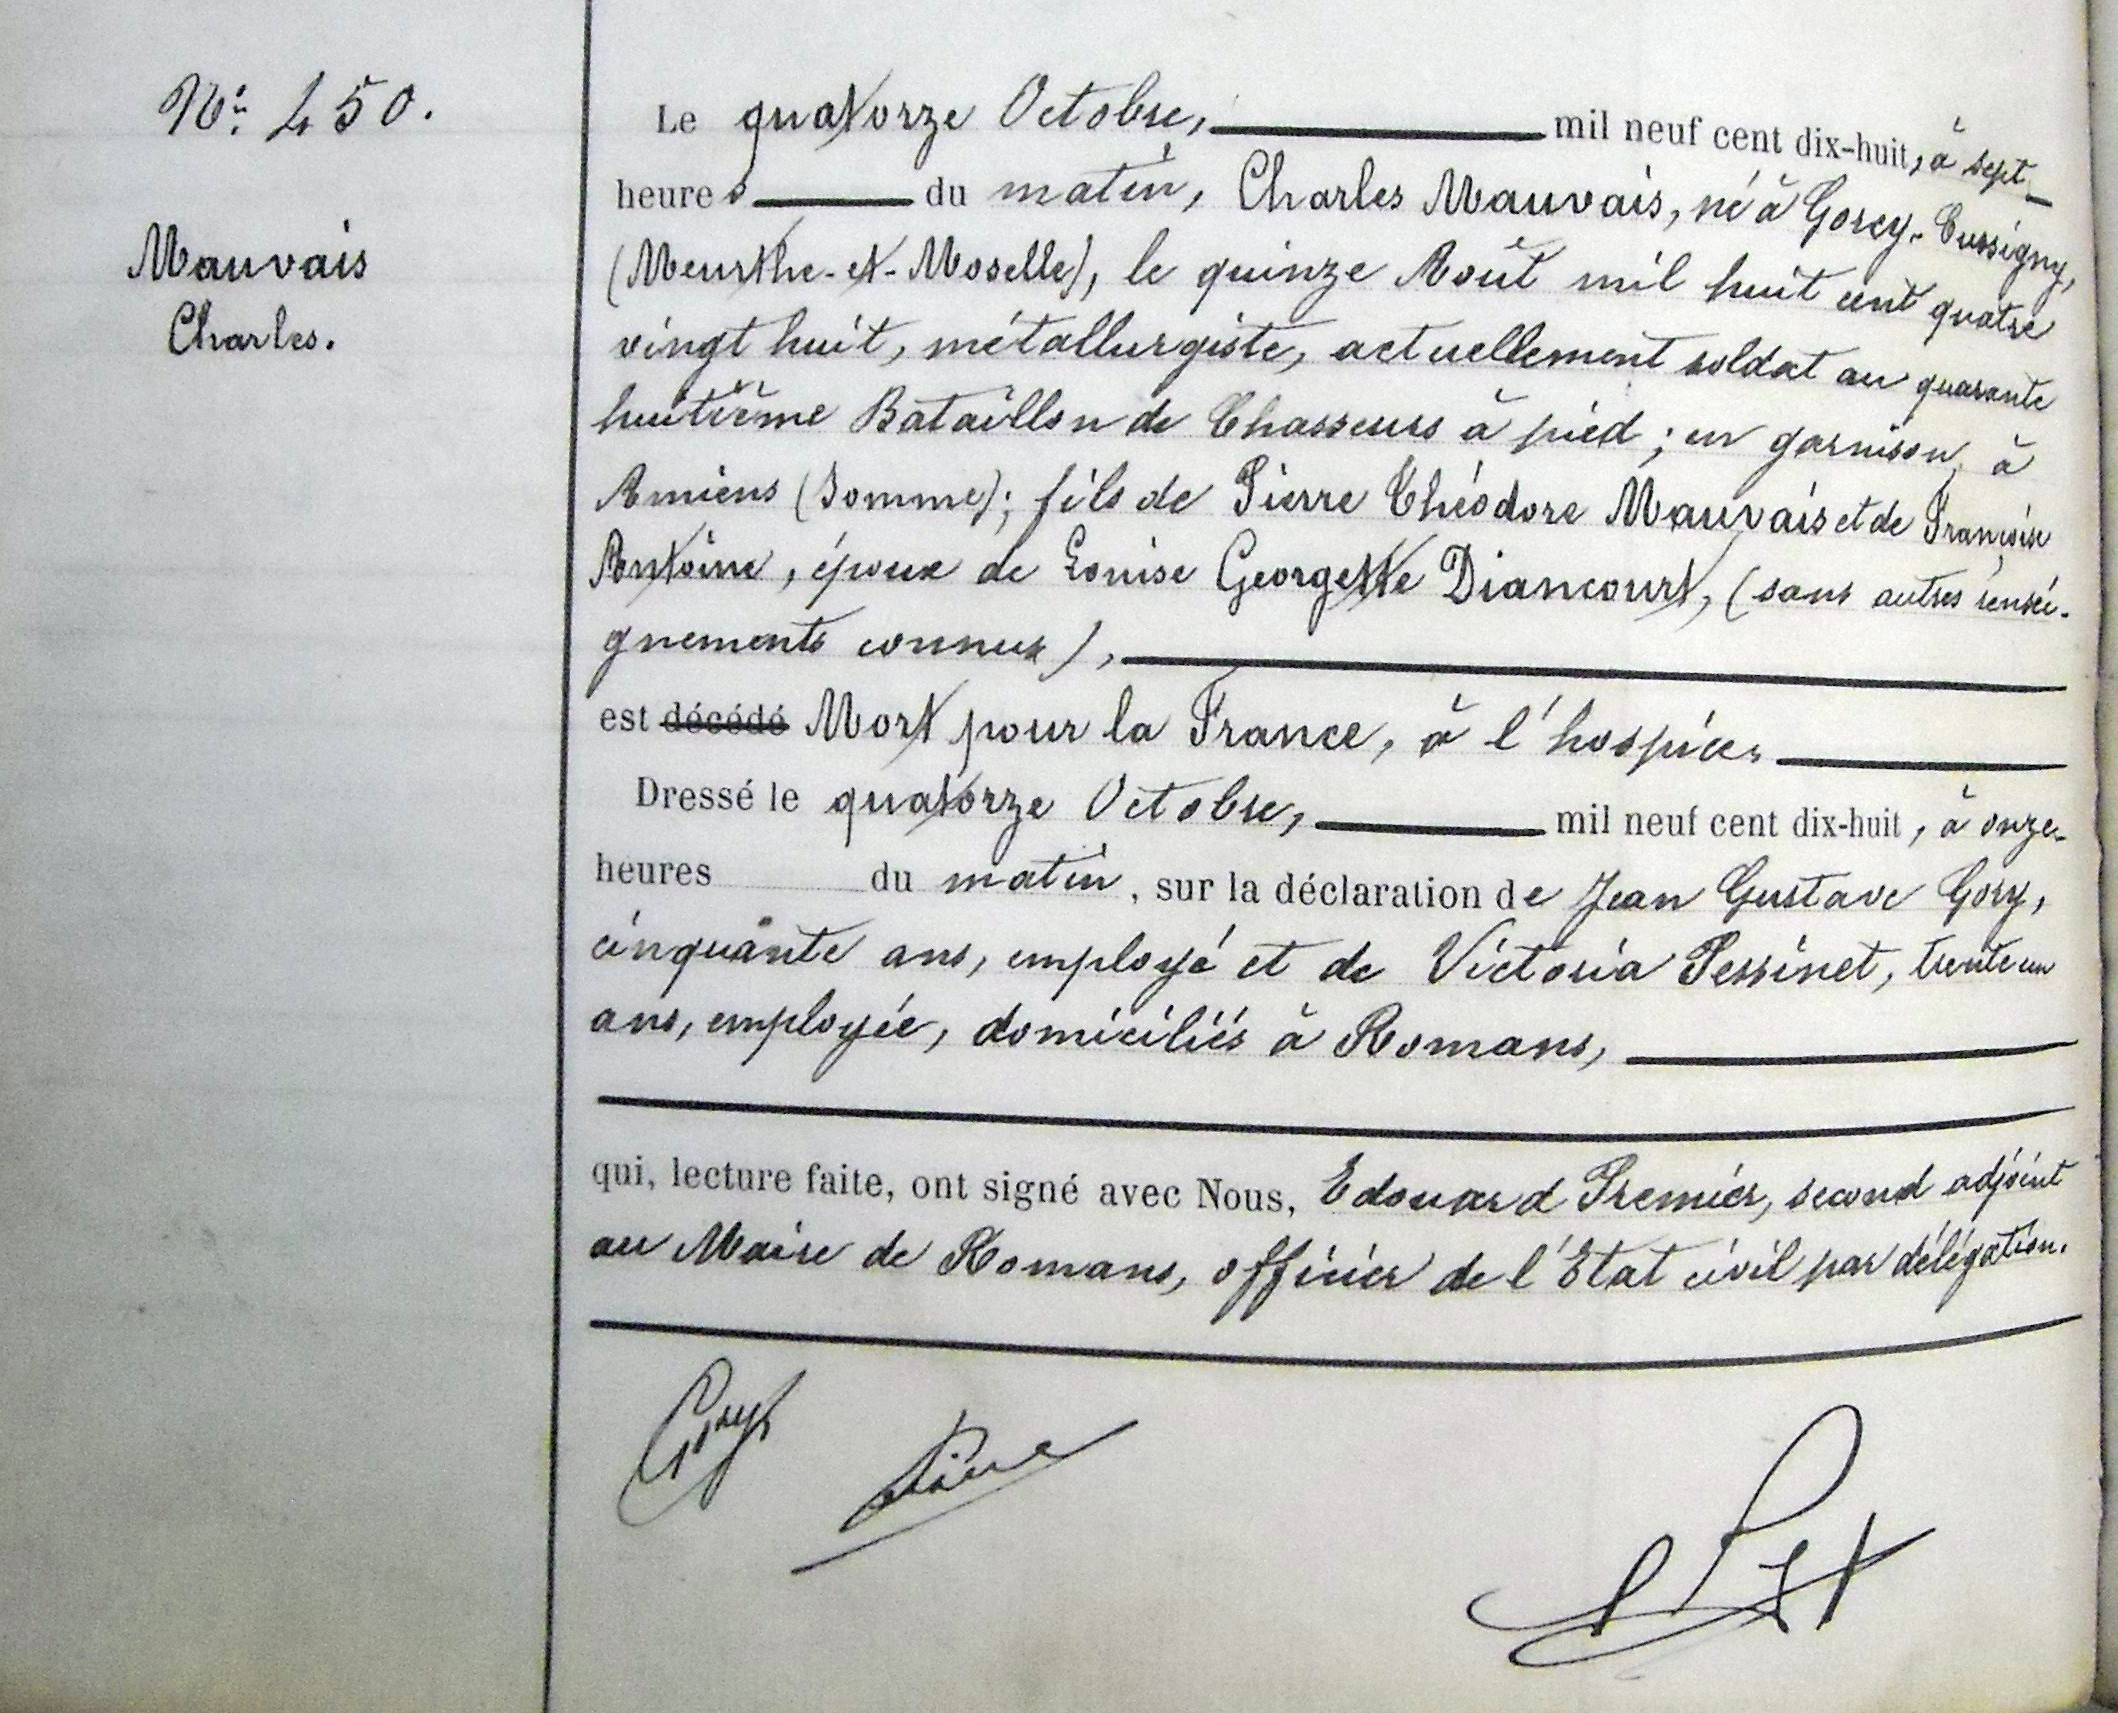 N° 450.
Mauvais
Charles.
Le quatorze Octobre, mil neuf cent dix-huit, à sept
heures du matin, Charles Mauvais, né à Gorcy-Cussigny,
(Meurthe-et-Moselle), le quinze Août mil huit cent quatre
vingt huit, métallurgiste, actuellement soldat au quarante
huitième Bataillon de Chasseurs à pied ; en garnison, à
Amiens (Somme) ; fils de Pierre Théodore Mauvais et de Françoise
Antoine, époux de Louise Georgette Diancourt, (sans autres rensei-
gnements connus),
est décédé Mort pour la France, à l'hospice,
Dressé le quatorze Octobre, mil neuf cent dix-huit, à onze
heures du matin, sur la déclaration de Jean Gustave Gory,
cinquante ans, employé et de Victoria Pessinet, trente un
ans, employée, domiciliés à Romans,
qui, lecture faite, ont signé avec Nous, Edouard Premier, second adjoint
au Maire de Romans, officier de l'Etat civil par délégation.
Gory